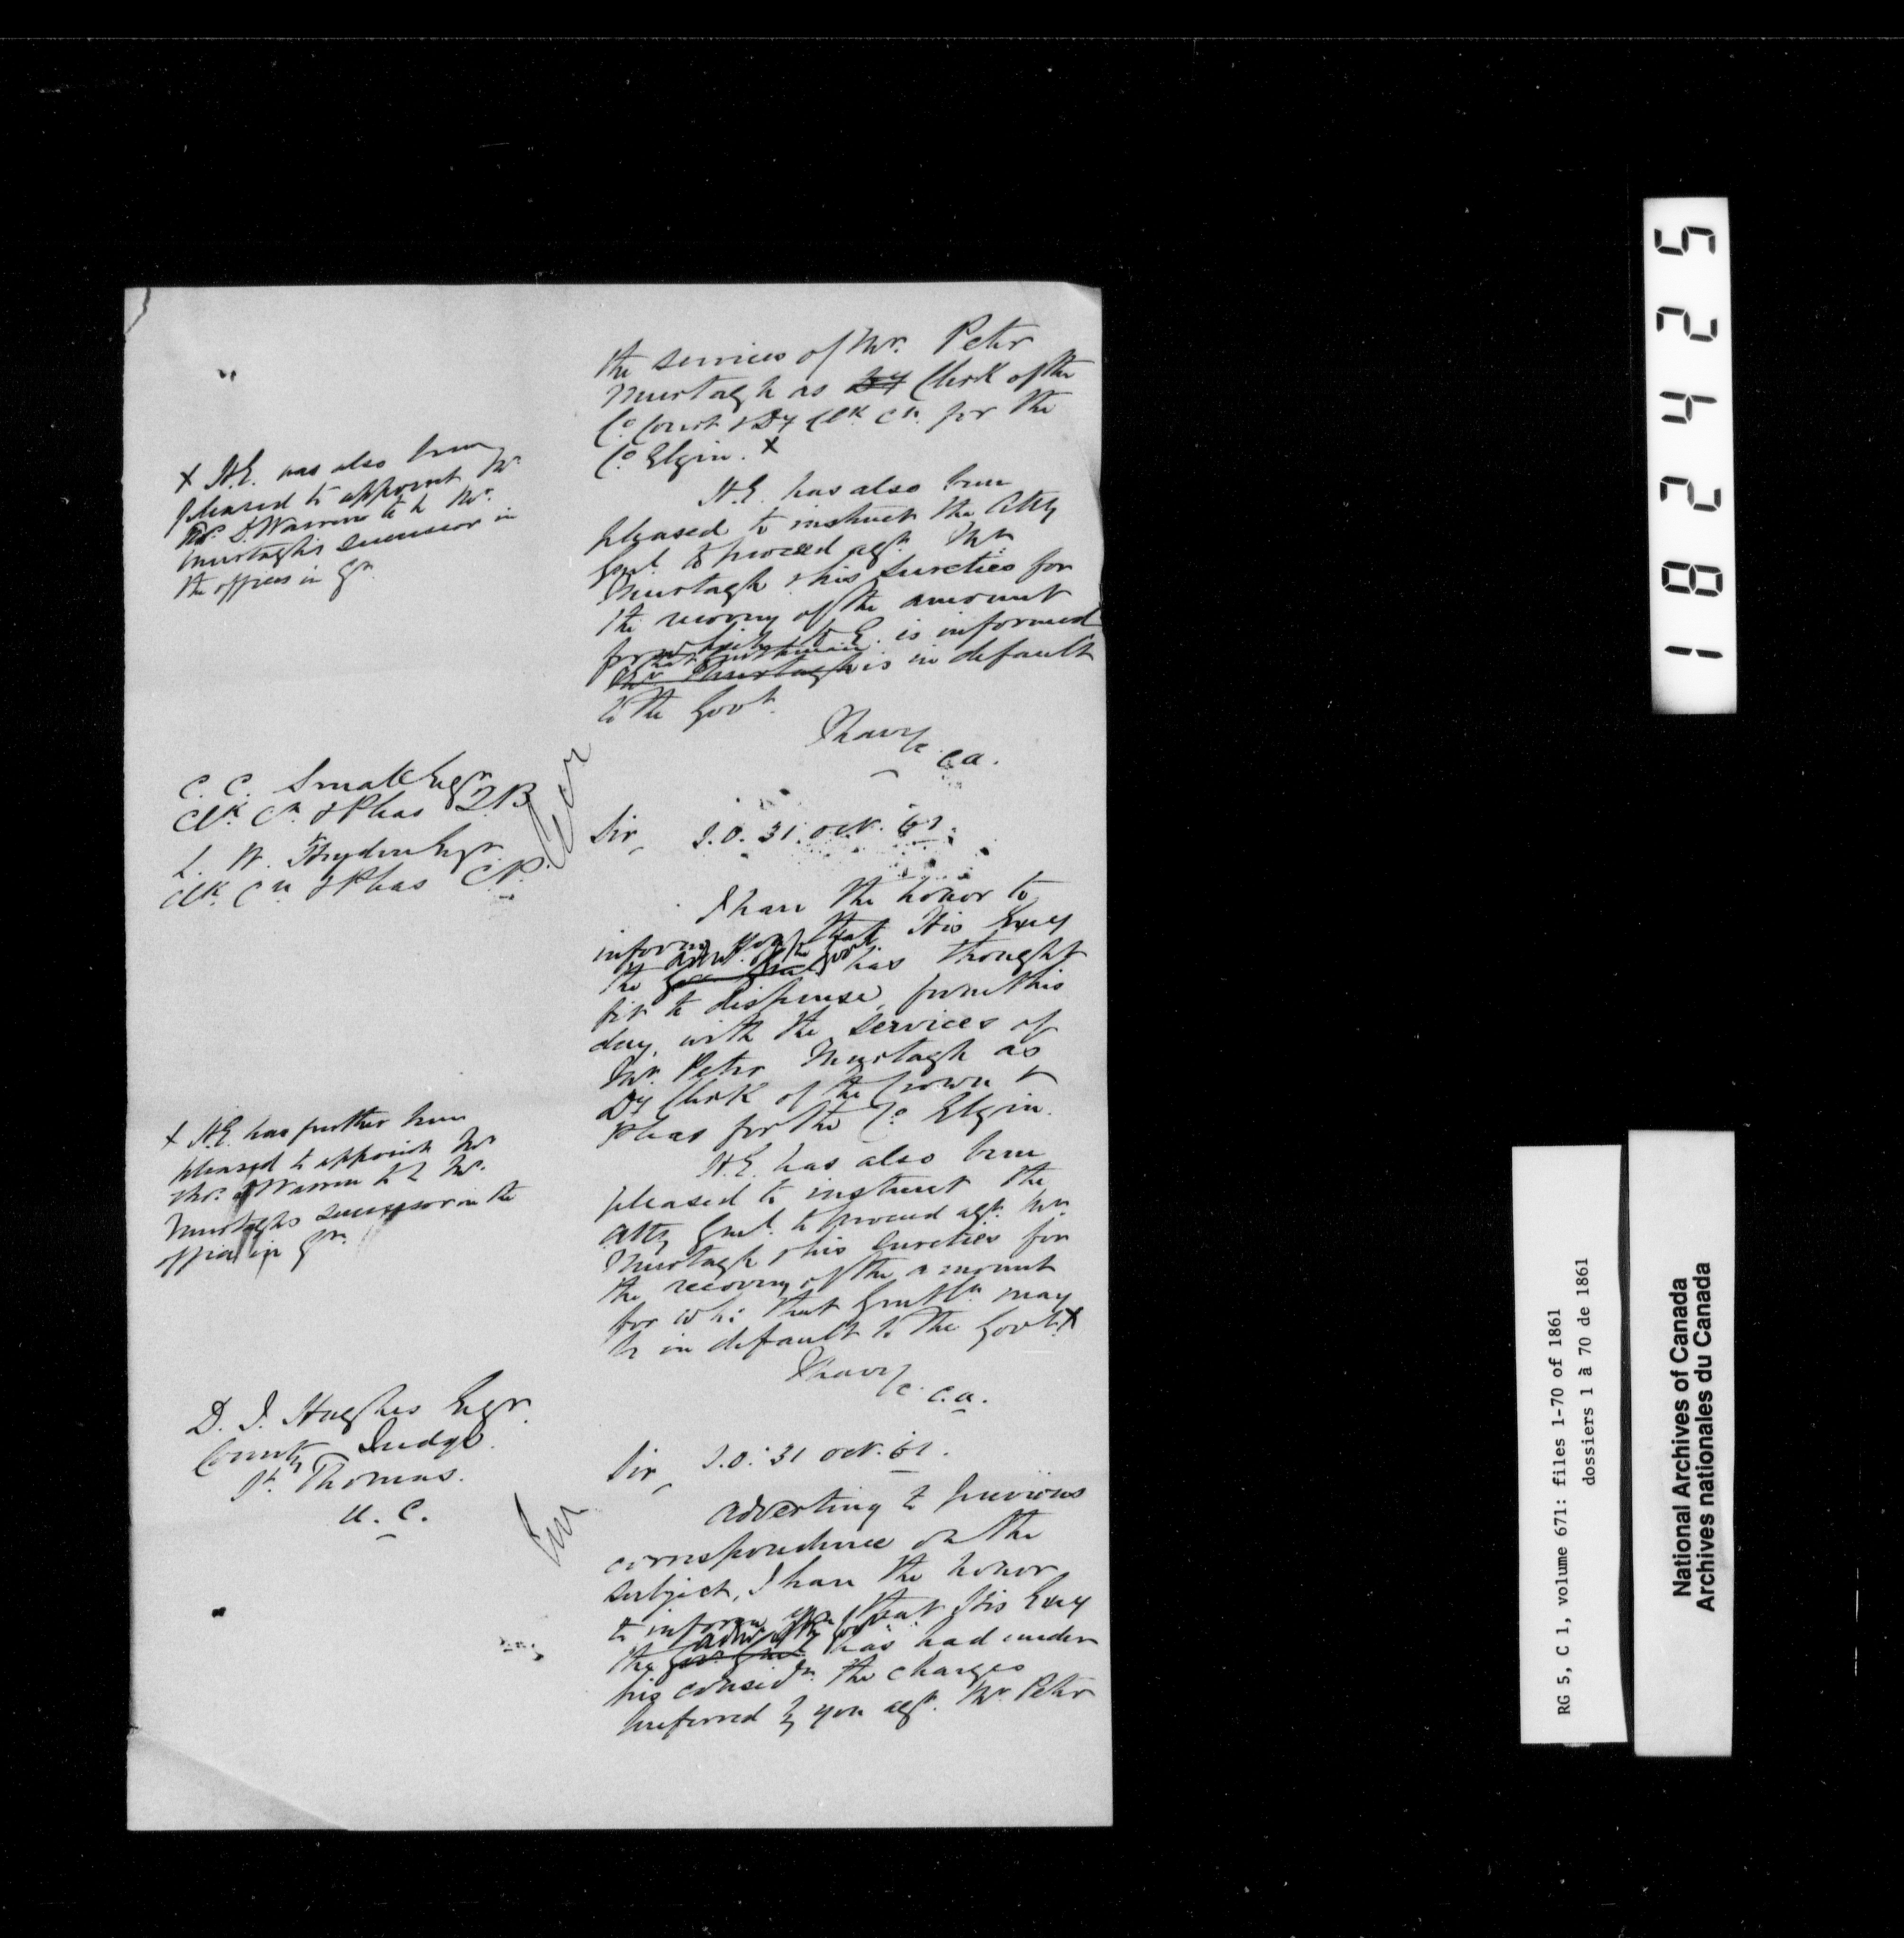 the services of Mr. Peter
Murtagh as Dy Clerk of the
Co. Court & Dy Clk. Cn. for the
Co. Elgin. x
x H.E. was also been
pleased to appoint Mr
D. Warren to be Mr.
Murtagh's successor in
the offices in qn.
H.E. has also been
pleased to instruct the Atty
Genl. to proceed agt. Mr.
Murtagh & his Sureties for
the recovery of the amount
for which H.E. is informed
that Gentleman
Mr. Murtagh is in default
to the Govt.
I have &c. C.A.
C. C. Small Esqr.
Clk. Cn. & Pleas Q.B
L. W. Heyden Esqr.
Clk. Cn & Pleas C.P.
Sir, S.O. 31. Oct. 61.
I have the honor to
inform you that His Excy
the Admr. of the Govt.
Gov. Genl. has thought
fit to dispense, from this
day, with the services of
Mr. Peter Murtagh as
Dy Clerk of the Crown &
Pleas for the Co. Elgin.
H.E. has also been
pleased to instruct the
Atty Genl. to proceed agt. Mr.
Murtagh & his Sureties for
the recovery of the amount
for whi: that Gentln. may
be in default to the Govt. x
I have &c. C.A.
x H.E. has further been
pleased to appoint Mr
Warren to be Mr.
Murtagh's successor in the
office in qn.
D. J. Hughes Esqr.
County Judge.
St. Thomas.
U. C.
Sir, S.O. 31 Oct. 61.
Adverting to previous
correspondence on the
subject, I have the honor
to inform you that His Excy
Admr. of the Govt.
the Gov. Genl. has had under
his considn. the charges
preferred by you agt. Mr. Peter
18245
RG 5, C 1, volume 671: files 1-70 of 1861
dossiers 1 à 70 de 1861
National Archives of Canada
Archives nationales du Canada